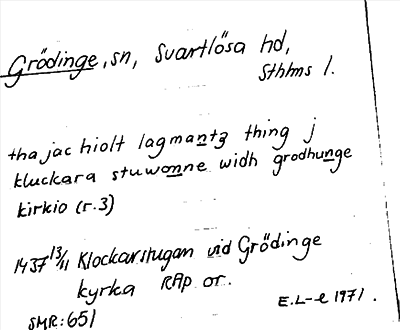 Grödinge, sn, Svartlösa hd,
Sthlms l.
tha jac hiolt lagmantz thing j
kluckara stuwonne widh grodhunge
kirkio (r.3)
1437 13/11 Klockarstugan vid Grödinge
kyrka RAp or.
SMR:651
E.L-e 1971.